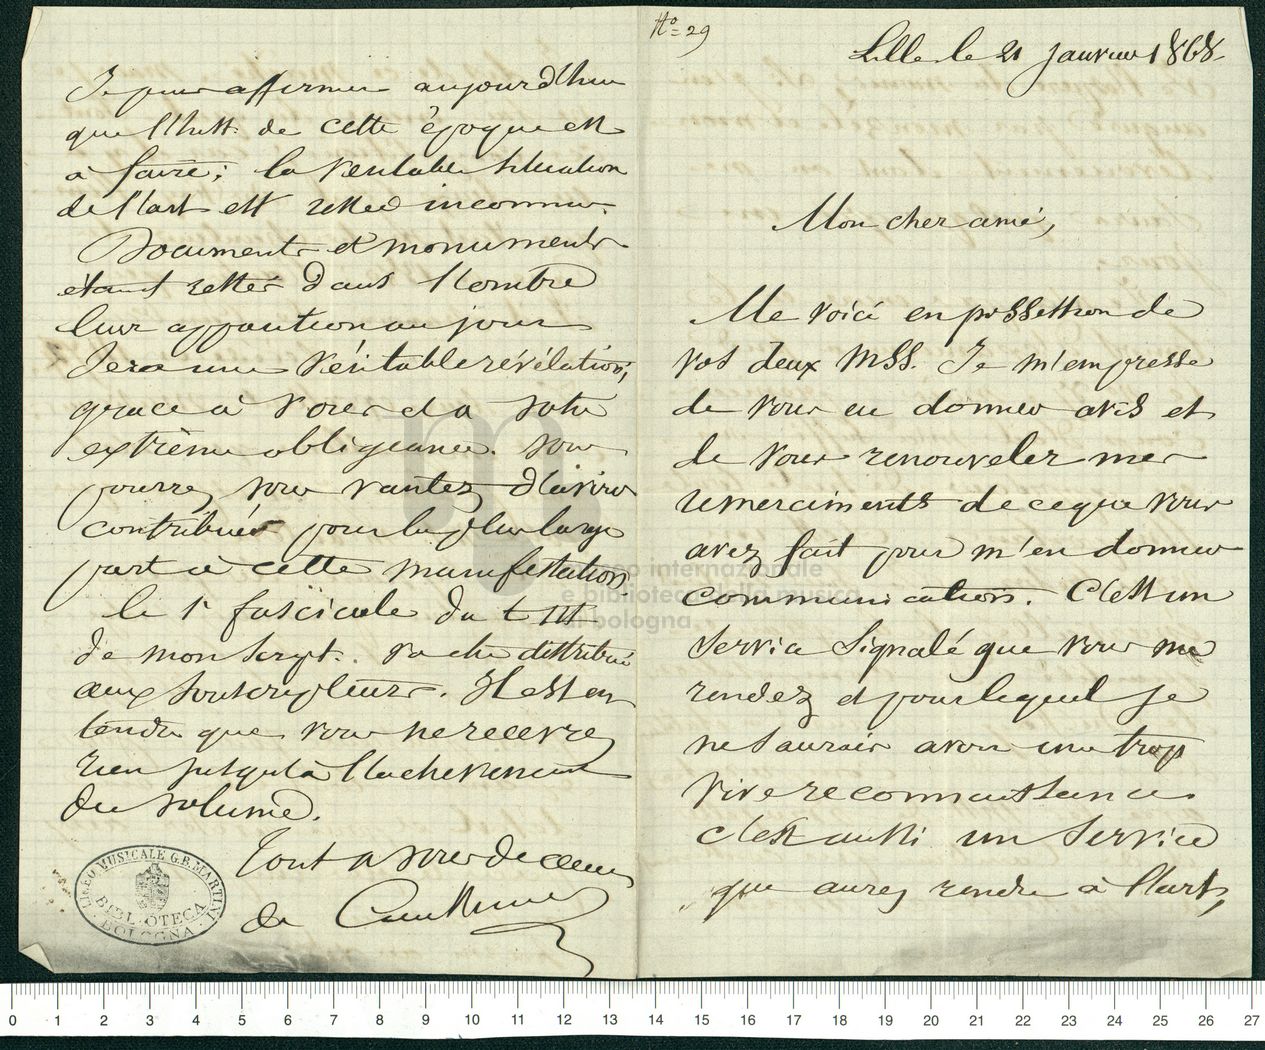 No 29
Lille le 21 janvier 1868
Mon cher ami,
Me voici en possession de
vos deux MSS. Je m'empresse
de vous en donner avis et
de vous renouveler mes
remerciments de ce que vous
avez fait pour m'en donner
communication. C'est un
service signalé que vous me
rendez et pour lequel je
ne saurais avoir une trop
vive reconnaissance
c'est aussi un service
que aurez rendu à l'art,
Je puis affirmer aujourd'hui
que l'hist. de cette époque est
à faire; la véritable situation
de l'art est restée inconnue.
Documents et monuments
étant restés dans l'ombre
leur apparition au jour
sera une véritable révélation,
grace à vous et à votre
extrème obligeance. vous
pourrez vous vantez d'avoir
contribuer pour la plus large
part à cette manifestation.
le 1r fascicule du t III
de mon Script. va être distribué
aux souscripteurs. Il est en
tendu que vous ne recevrez
rien jusqu'à l'achèvement
du volume.
Tout a vous de cœur
de Coussemaker
LICEO MUSICALE G.B. MARTINI
BIBLIOTECA
BOLOGNA
museo internazionale
e biblioteca della musica
di bologna
0 1 2 3 4 5 6 7 8 9 10 11 12 13 14 15 16 17 18 19 20 21 22 23 24 25 26 27